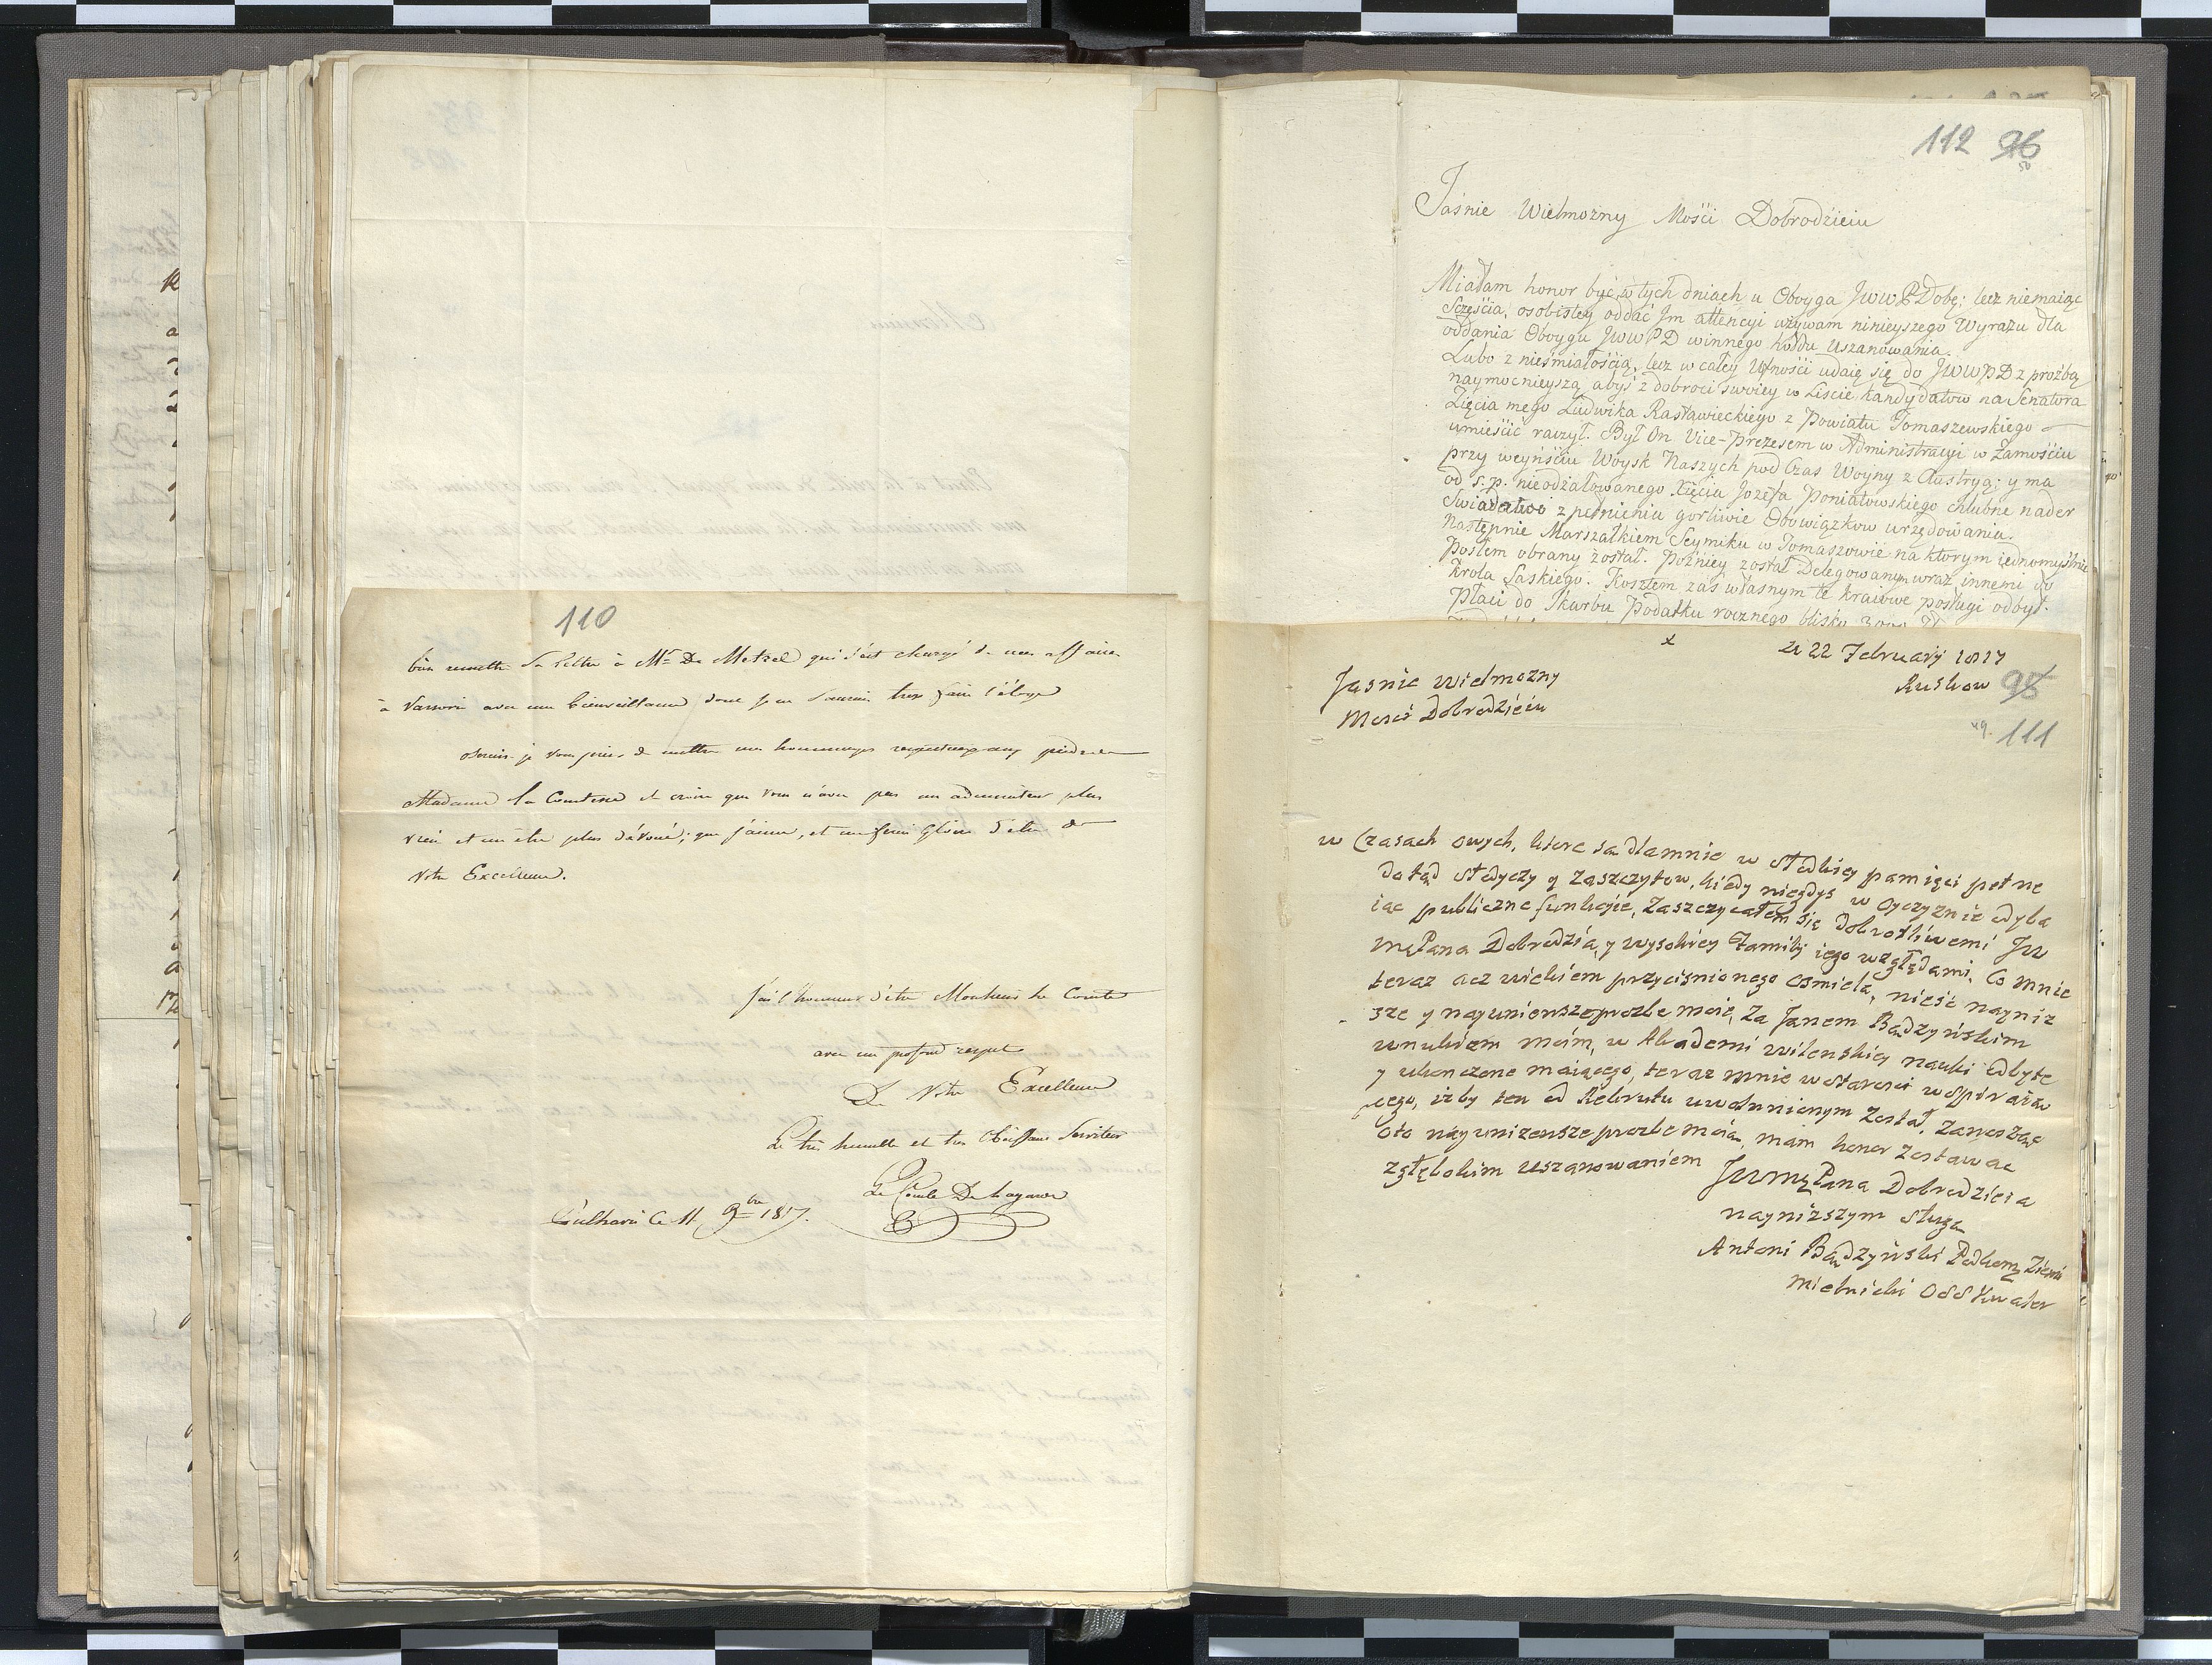 110
bien remettre sa lettre à Mr De Metzel qui s'est chargé de mes affaires
à Varsovie avec une bienveillance dont je ne saurais trop faire l'éloge
oserais-je vous prier de mettre mes hommages respectueux aux pieds de
Madame la Comtesse et croire que vous n'avez pas un admirateur plus
vrai et un être plus dévoué, que j'aime, et me fais gloire d'être de
Votre Excellence.
J'ai l'honneur d'être Monsieur le Comte
avec un profond respect
De Votre Excellence
Le très humble et très obéissant Serviteur
Le Comte De
ce 11 9bre 1817.
112 96
Jaśnie Wielmożny Mości Dobrodzieiu
Miałam honor być w tych dniach u Oboyga JWW PDobę; lecz niemaiąc
Sczęścia, osobistey oddać Jm attencyi używam ninieyszego Wyrazu dla
oddania Oboygu JWWPD winnego hołdu Uszanowania.
Lubo z nieśmiałością, lecz w całey Ufności udaię się do JWWPD z proźbą
naymocnieyszą abyś z dobroci swoiey w Liscie kandydatow na Senatora
Zięcia mego Ludwika Rastawieckiego z Powiatu Tomaszewskiego
umieścić raczył. Był On Vice-Prezesem w Administracyi w Zamościu
przy weyńściu Woysk Naszych pod Czas Woyny z Austryą; y ma
od s. p. nieodżałowanego Xięcia Jozefa Poniatowskiego chlubne nader
Swiadatwo z pełnieniu gorliwie Obowiązkow urzędowania.
Następnie Marszałkiem Seymiku w Tomaszowie na ktorym iednomyślnie
Posłem obrany został. Poźniey został Delegowanym wraz innemi do
Krola Saskiego. Kosztem zaś własnym te kraiowe posługi odbył.
Płaci do Skarbu Podatku rocznego blisko 3000 Zł
x
d 22 February 1817
Ruskow 95
111
Jasnie wielmozny
Mosci Dobrodzieiu
w Czasach owych, ktore sa dlamnie w stodkiey pamięci pełne
dotąd stodyczy y zaszczytow, kiedy niegdys w oyczyznie odyba
iąc publiczne funkcyie, zaszczycałem się dobrotliwemi JW
mę Pana Dobrodzia, y wysokiey Familij iego względami, Co mnie
teraz acz wiekiem przycisnionego osmiela, nieść nayniz
sze y nayunizensze prozbe moie, za Janem Bądzyńskim
wnukiem moim, w Akademi wilenskiey nauki odbyte
y ukonczone maiącego, teraz mnie w starosci wspiraiąe
cego, izby ten od Rekrutu uwolnnionym został. Zanosząc
oto nayunizensze prozbe moia, mam honor zostawac
zgłębokim uszanowaniem JWmę Pana Dobrodzieia
naynizszym sługa
Antoni Bądzyński Podkomę Ziemi
Mielnicki Ossx Kwaler